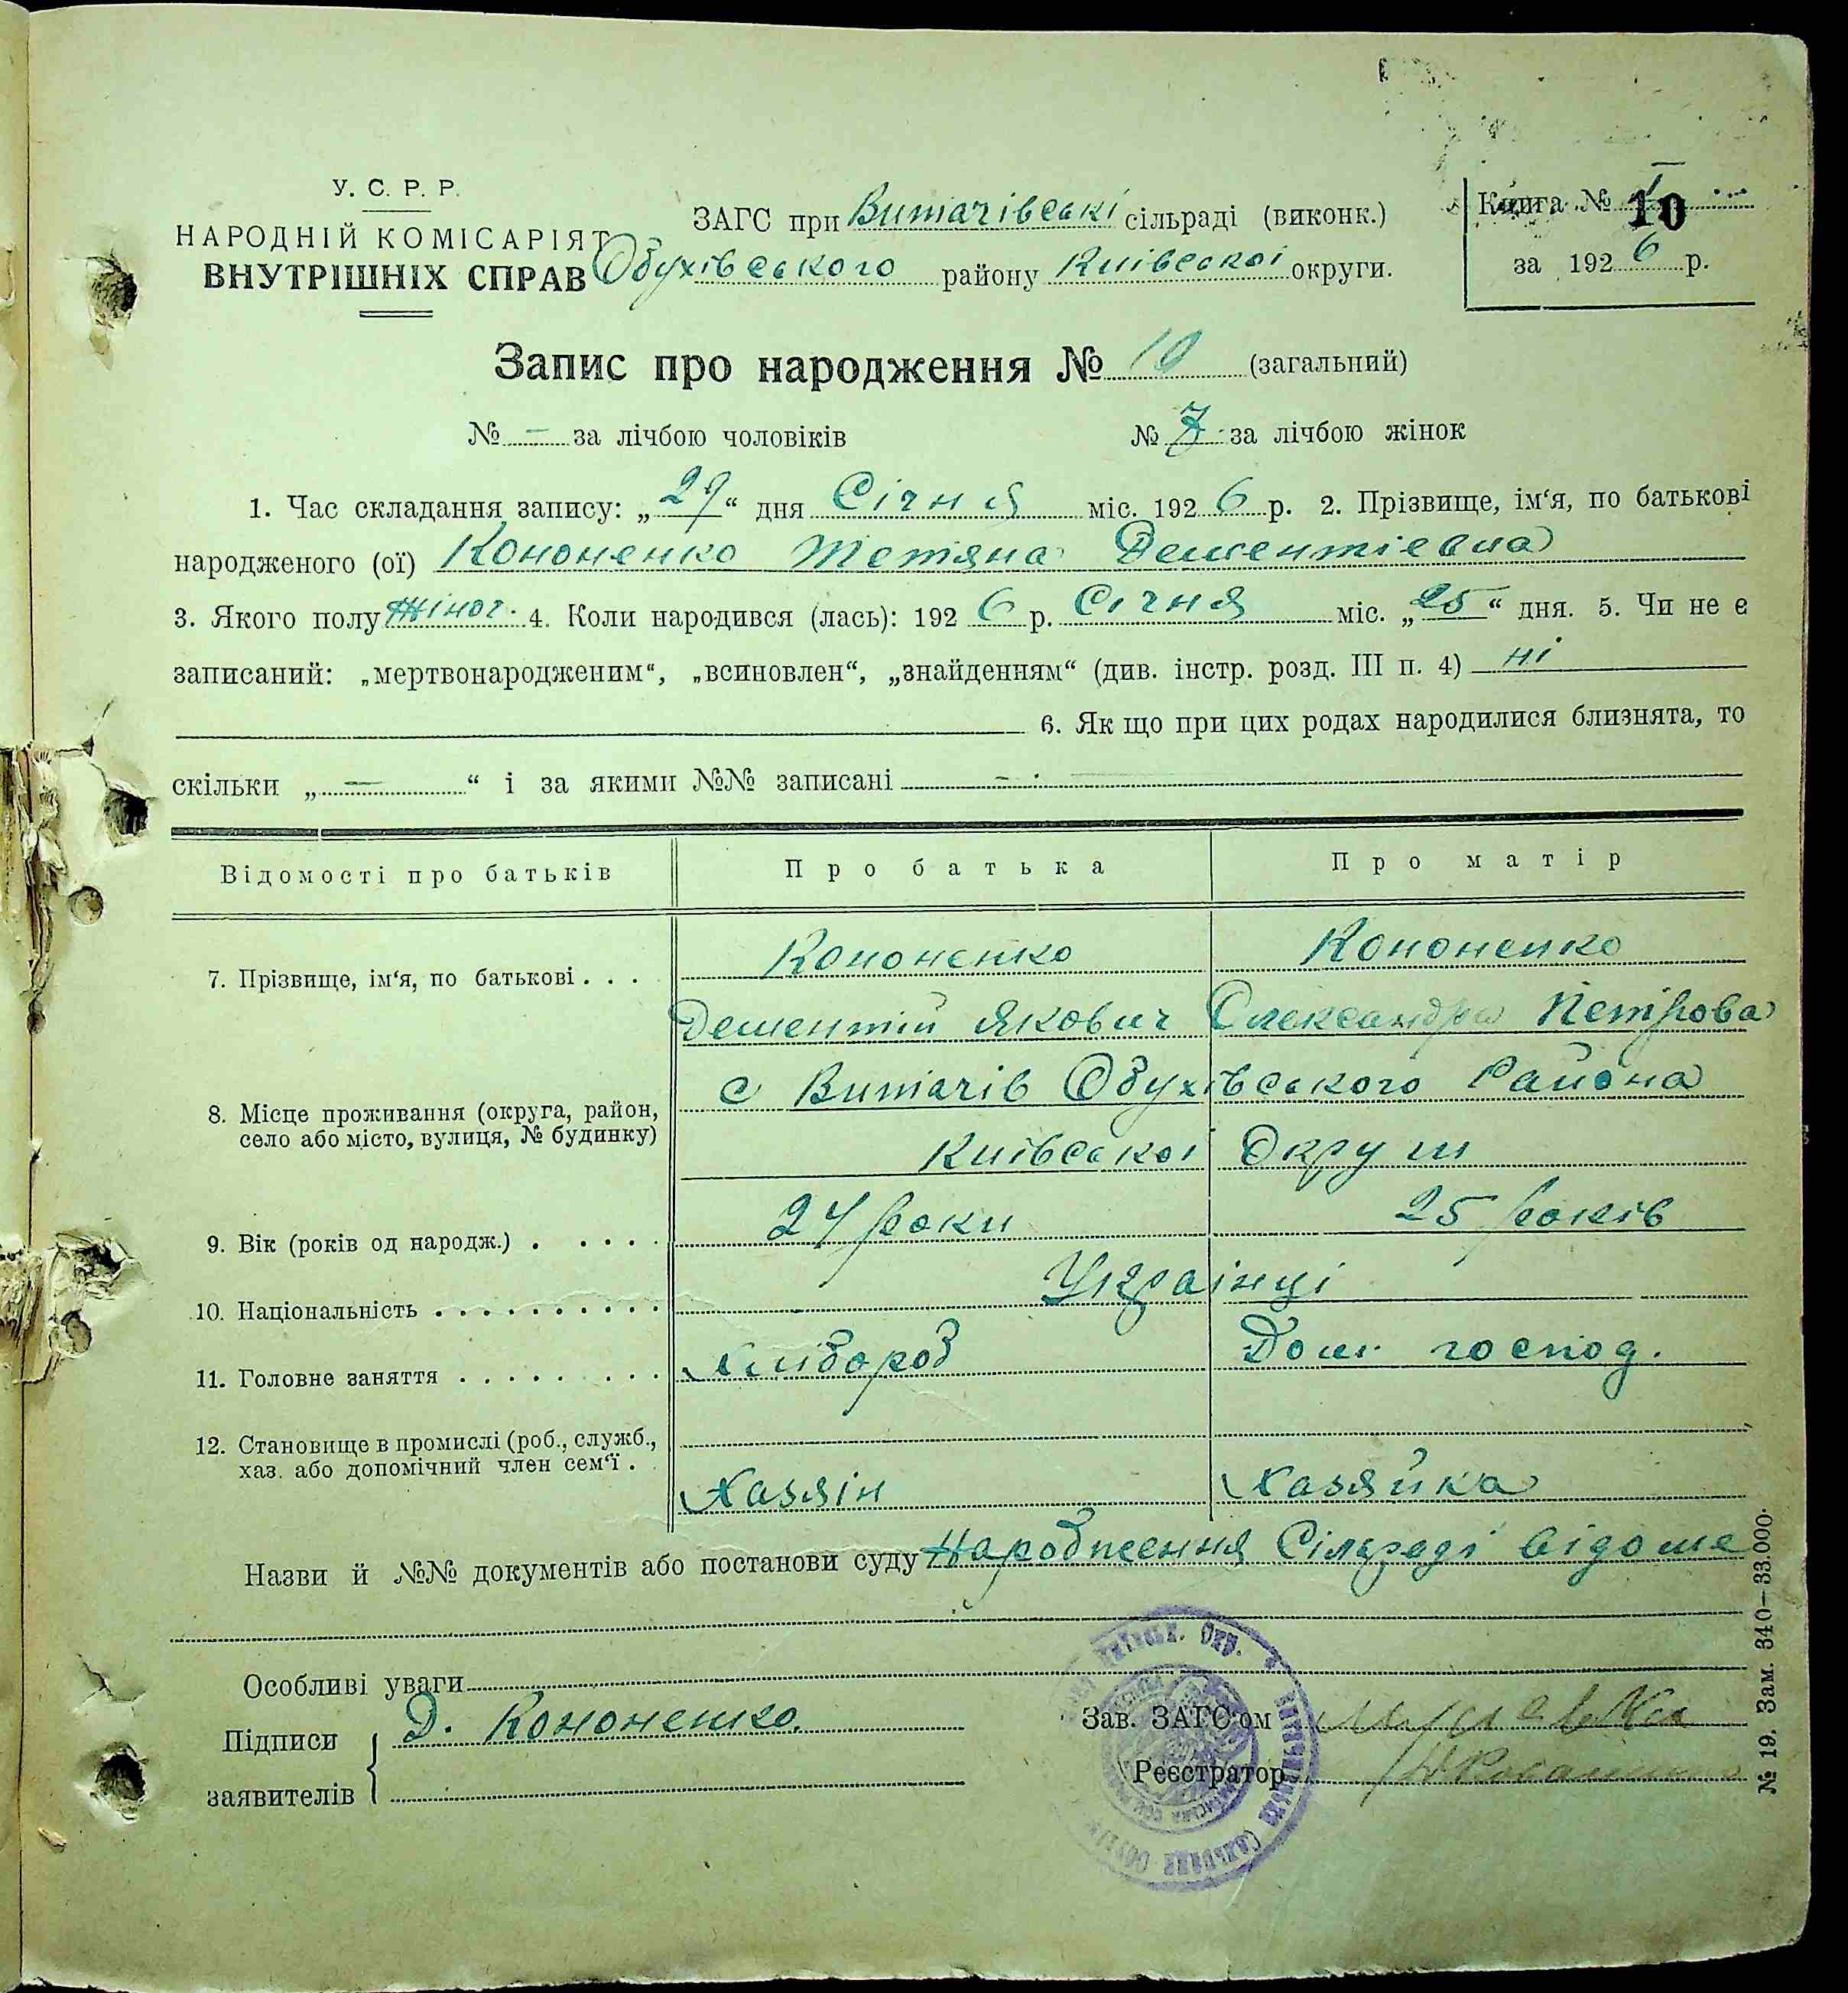 У. С. Р. Р.
НАРОДНІЙ КОМІСАРІЯТ
ВНУТРІШНІХ СПРАВ
ЗАГС при Витачівські сільраді (виконк.)
Обухівського району Київської округи.
Книга № I 10
за 1926 р.
Запис про народження № 10 (загальний)
№ — за лічбою чоловіків № 7 за лічбою жінок
1. Час складання запису: „29“ дня Січня міс. 1926 р. 2. Прізвище, ім‘я, по батькові
народженого (ої) Кононенко Тетяна Дементіевна
3. Якого полу жіноч. 4. Коли народився (лась): 1926 р. Січня міс. „25“ дня. 5. Чи не є
записаний: „мертвонародженим“, „всиновлен“, „знайденням“ (див. інстр. розд. III п. 4) ні
6. Як що при цих родах народилися близнята, то
скільки „—“ і за якими №№ записані —
Відомості про батьків Про батька Про матір
7. Прізвище, ім‘я, по батькові . . . Кононенко Кононенко
Дементий Якович Олександра Петрова
8. Місце проживання (округа, район, село або місто, вулиця, № будинку) с Витачів Обухівського Района
Київської Округи
9. Вік (років од народж.) . . . . . 24 роки 25 років
10. Національність . . . . . . . . . . Українці
11. Головне заняття . . . . . . . . . Хлібороб Дом. господ.
12. Становище в промислі (роб., служб.,
хаз. або допомічний член сем‘ї . Хазяін Хазяйка
Назви й №№ документів або постанови суду Народження Сілраді відоме
Особливі уваги
Підписи
заявителів
Д. Кононенко.
Зав. ЗАГС‘ом
Реєстратор
№ 19. Зам. 340—33.000.